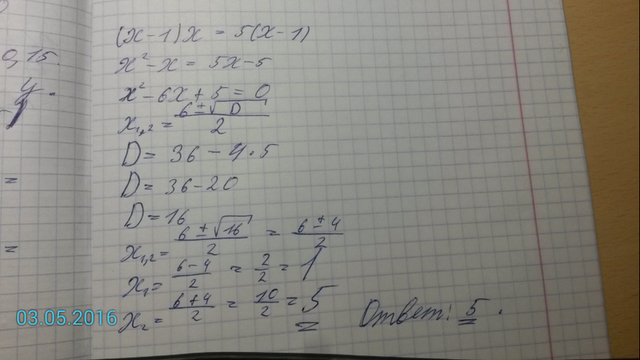 0,15.
y.
=
=
(x-1)x = 5(x-1)
x² - x = 5x - 5
x² - 6x + 5 = 0
x₁,₂ = (6 ± √D)/2
D = 36 - 4·5
D = 36 - 20
D = 16
x₁,₂ = (6 ± √16)/2 = (6 ± 4)/2
x₁ = (6 - 4)/2 = 2/2 = 1
x₂ = (6 + 4)/2 = 10/2 = 5 Ответ: 5.
03.05.2016